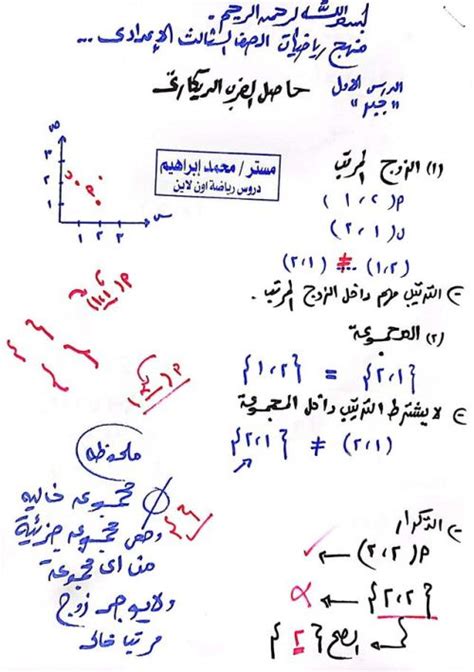 بسم الله الرحمن الرحيم
منهج رياضيات الصف الثالث الإعدادى ...
الدرس الأول
حاصل الضرب الديكارتى
"جبر"
مستر/ محمد إبراهيم
دروس رياضة اون لاين
(١) الزوج المرتب
(١،٢)
(٢،١)
(١،٢) ≠ (٢،١)
الترتيب مهم داخل الزوج المرتب.
(٢) المجموعة
{١،٢} = {٢،١}
لا يشترط الترتيب داخل المجموعة
{٢،١} ≠ (٢،١)
ملحوظة
∅ مجموعه خاليه
{ }
وهى مجموعه جزئية
من اى مجموعة
ولا يوجد زوج
مرتب خالى
التكرار
(٢،٢) ✓
{٢،٢}
اصح {٢}